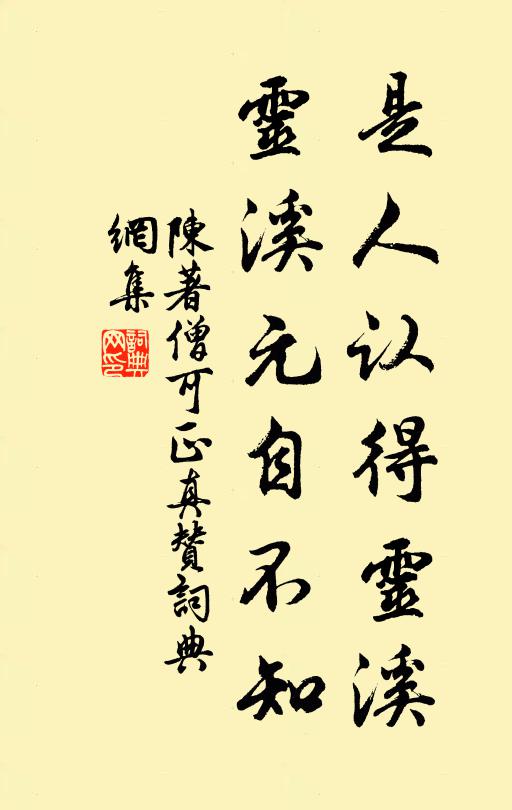 是人认得靈溪
靈溪元自不知
陳著僧可正真贊詞典
網集
詞典
网印